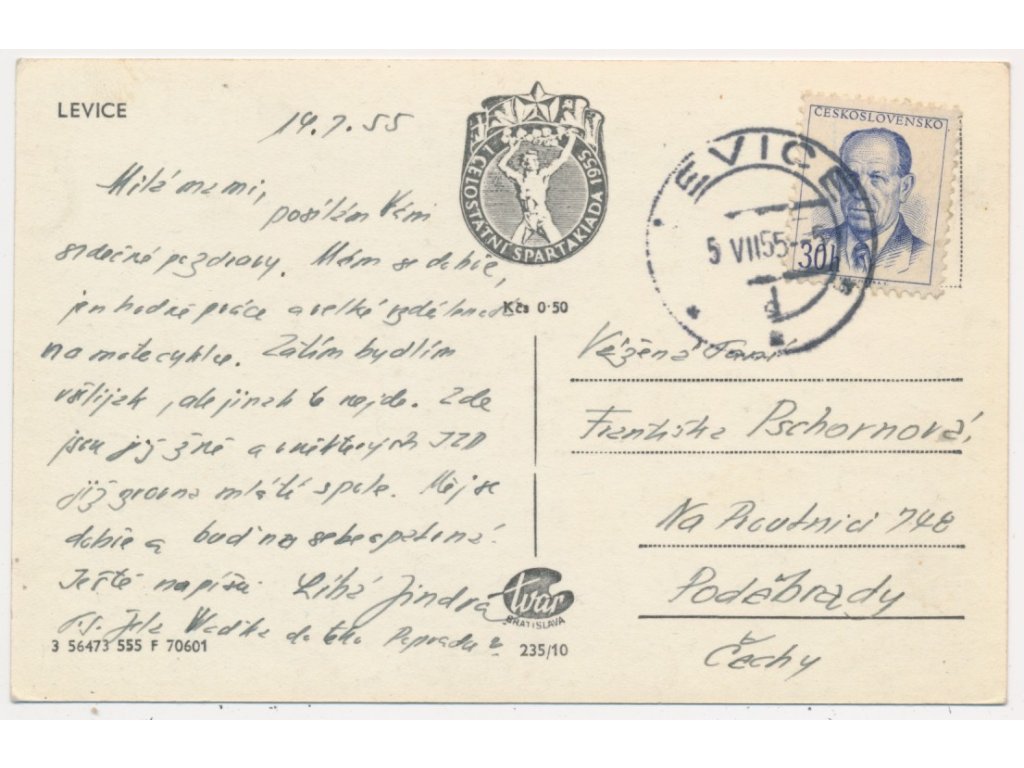 LEVICE
I. CELOSTÁTNÍ SPARTAKIÁDA 1955
ČESKOSLOVENSKO
30h
LEVICE
5 VII 55
14.7.55
Milá mami,
posílám Vám
srdečné pozdravy. Mám se dobře,
jen hodně práce a velké vzdálenosti
na motocyklu. Zatím bydlím
všlijak, ale jinak to nejde. Zde
jsou již žně a v některých JZD
již zrovna mlátí s pole. Měj se
dobře a buď na sebe opatrná.
Ještě napíšu Líbá Jindra
Kčs 0·50
Vážená Paní
Františka Pschornová,
Na 748
Poděbrady
Čechy
tvar
BRATISLAVA
3 56473 555 F 70601
235/10